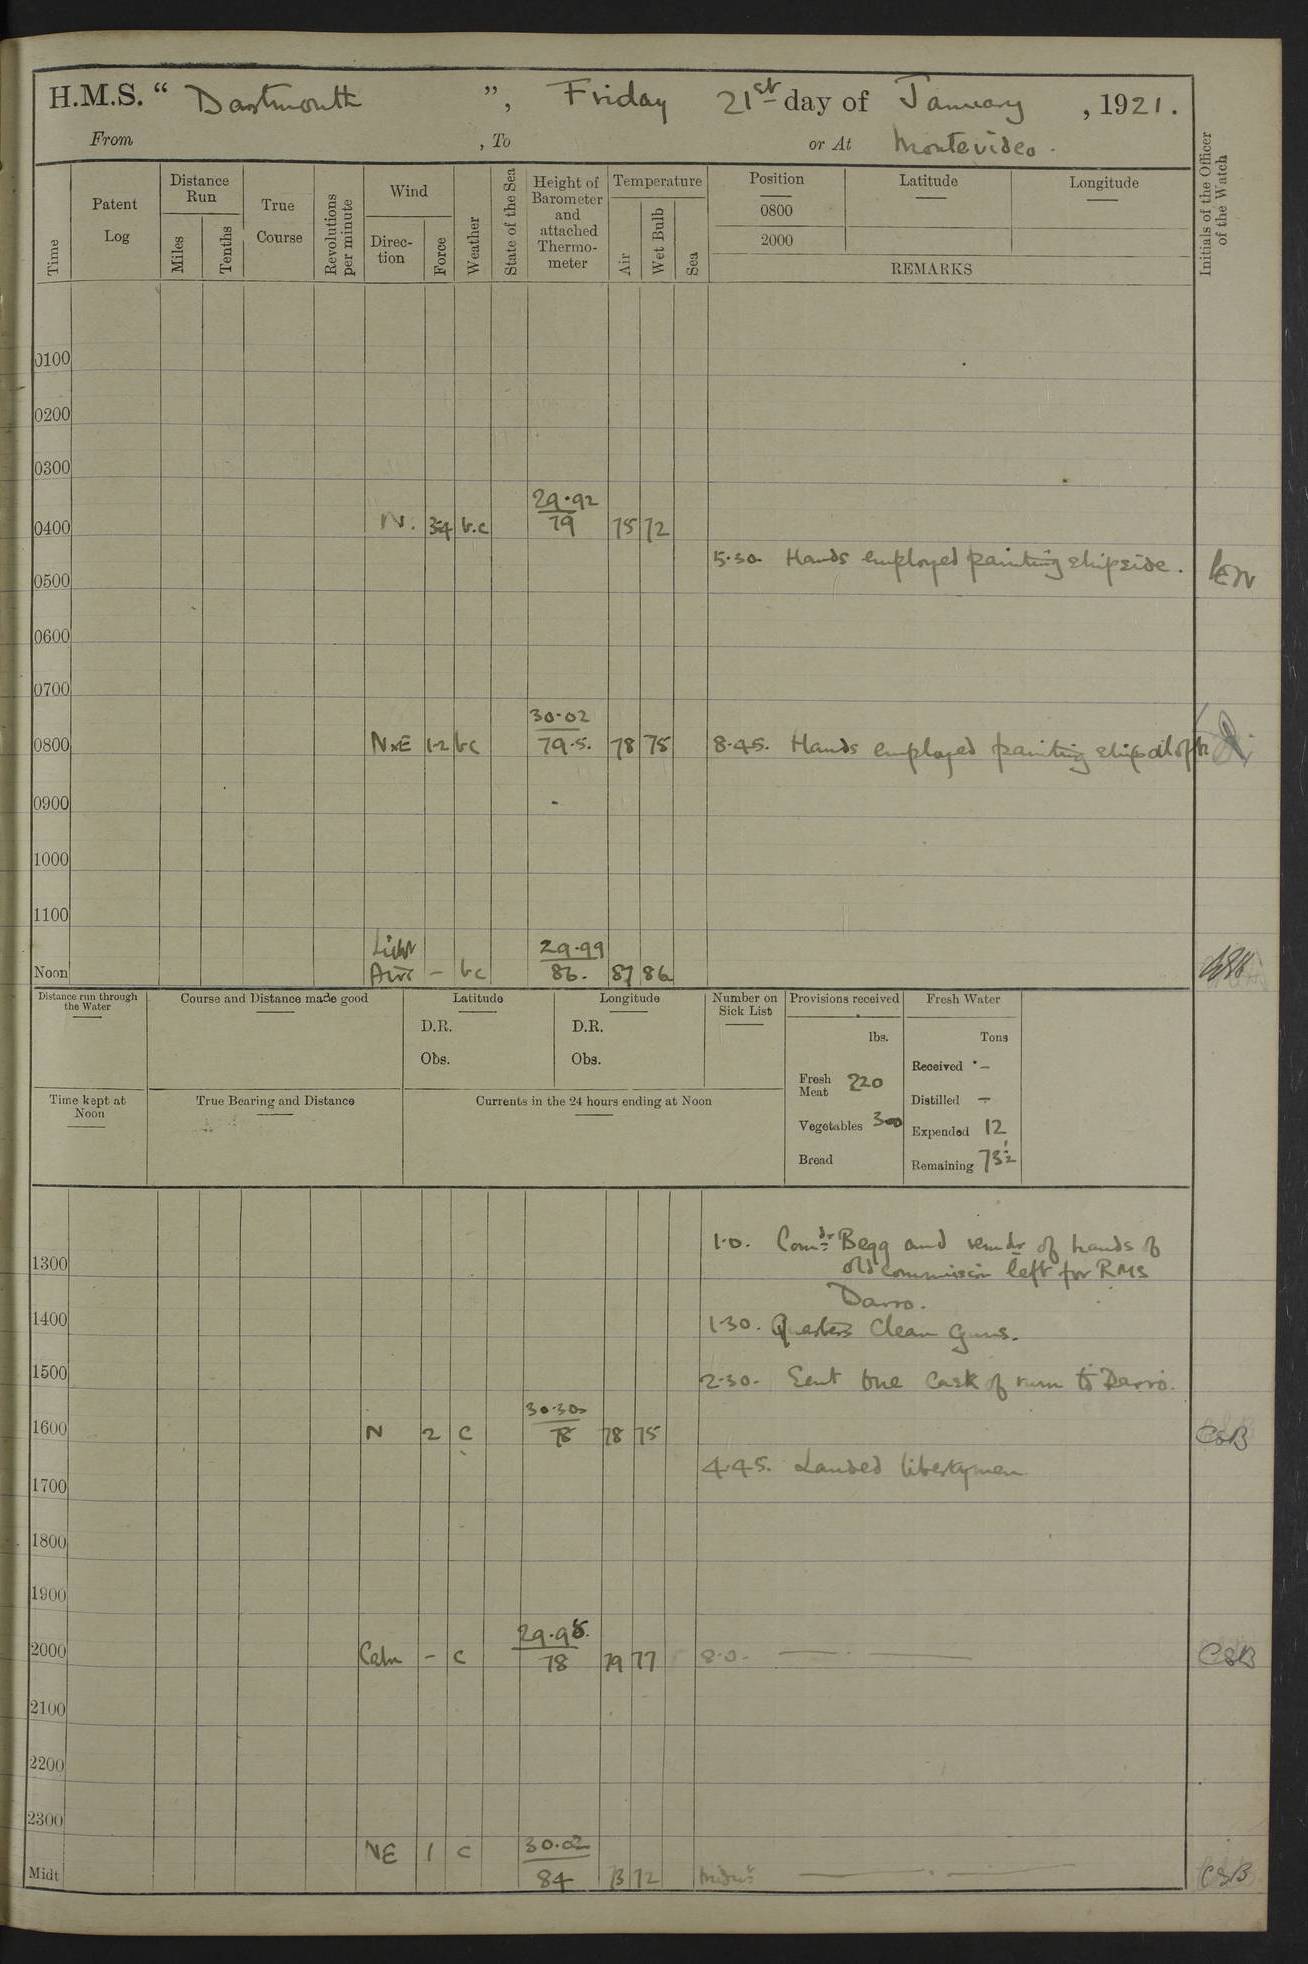 H.M.S. “ Dartmouth ”, Friday 21st day of January , 1921.
From , To or At Montevideo.
Time
Patent Log
Distance Run
Miles
Tenths
True Course
Revolutions per minute
Wind
Direc-tion
Force
Weather
State of the Sea
Height of Barometer and attached Thermo-meter
Temperature
Air
Wet Bulb
Sea
Position
0800
2000
Latitude
Longitude
REMARKS
Initials of the Officer of the Watch
0100
0200
0300
29.92
0400 N. 3-4 b.c 79 75 72
5.30. Hands employed painting shipside.
0500
0600
0700
30.02
0800 NxE 1-2 bc 79.5. 78 75 8.45. Hands employed painting ship
0900
1000
1100
Light 29.99
Noon Airs - bc 86. 87 86
Distance run through the Water
Course and Distance made good
Latitude
D.R.
Obs.
Longitude
D.R.
Obs.
Number on Sick List
Provisions received
lbs.
Fresh Meat 220
Vegetables 300
Bread
Fresh Water
Tons
Received -
Distilled -
Expended 12
Remaining 73½
Time kept at Noon
True Bearing and Distance
Currents in the 24 hours ending at Noon
1.0. Comdr Begg and remdr of hands of
1300 old commission left for RMS
Darro.
1400 1.30. Quarters Clean Guns.
1500 2.30. Sent one cask of rum to Darro.
30.30
1600 N 2 c 78 78 75 CSB
4.45. Landed libertymen
1700
1800
1900
29.98.
2000 Calm - c 78 79 77 8.0. CSB
2100
2200
2300
NE 1 c 30.02
Midt 84 73 72 Midnt CSB